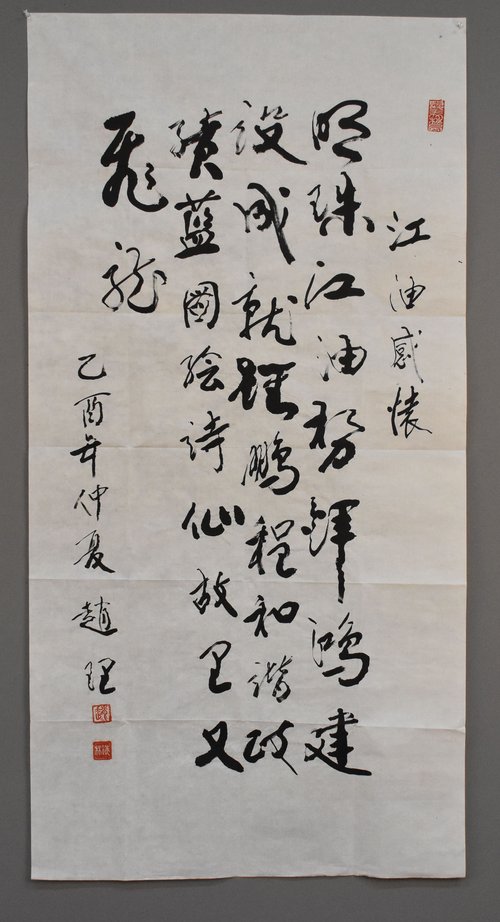 江油感懷
明珠江油鴻建
設成就鵬程和諧政
績藍圖繪詩仙故里又
飛龍
乙酉年仲夏 趙理